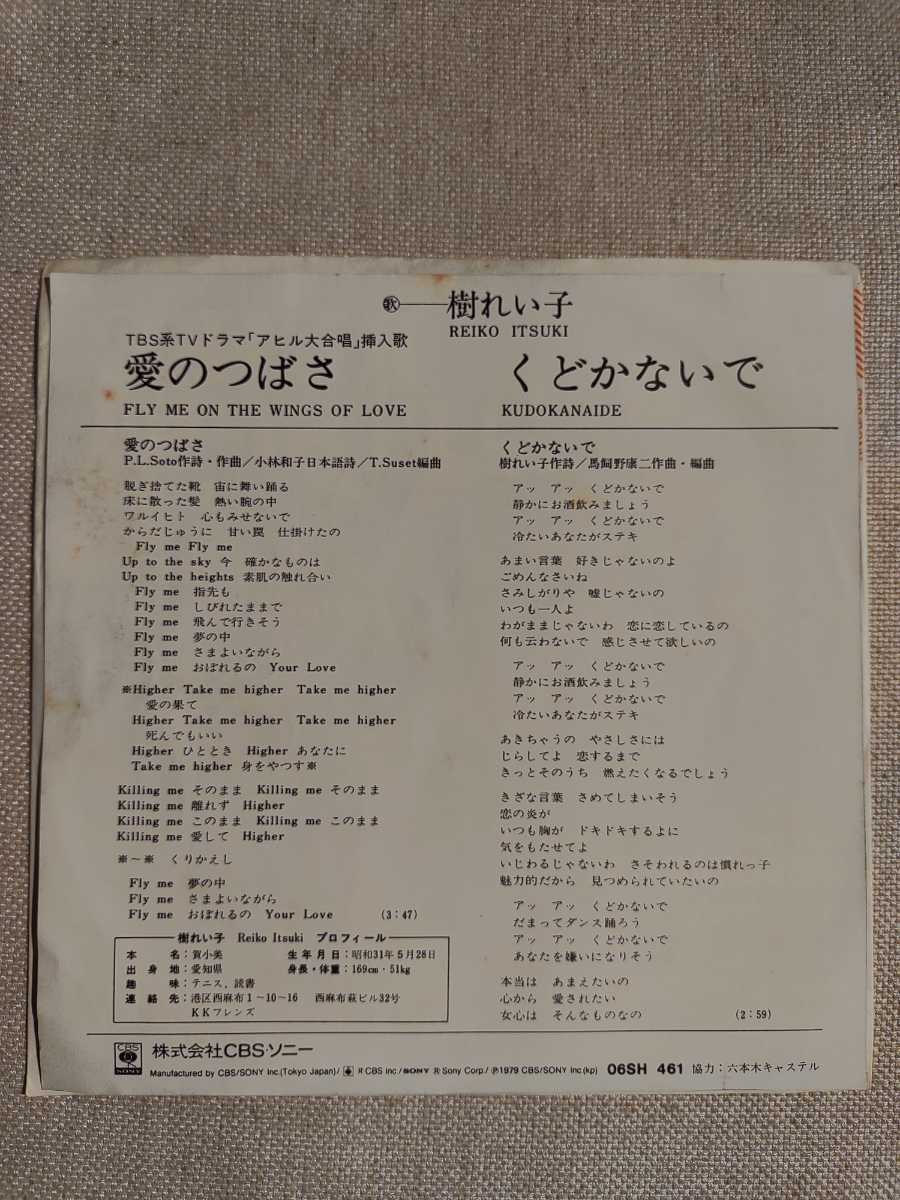 歌——樹れい子
REIKO ITSUKI
TBS系TVドラマ「アヒル大合唱」挿入歌
愛のつばさ
FLY ME ON THE WINGS OF LOVE
くどかないで
KUDOKANAIDE
愛のつばさ
P.L.Soto作詩・作曲／小林和子日本語詩／T.Suset編曲
脱ぎ捨てた靴 宙に舞い踊る
床に散った髪 熱い腕の中
ワルイヒト 心もみせないで
からだじゅうに 甘い罠 仕掛けたの
Fly me Fly me
Up to the sky 今 確かなものは
Up to the heights 素肌の触れ合い
Fly me 指先も
Fly me しびれたままで
Fly me 飛んで行きそう
Fly me 夢の中
Fly me さまよいながら
Fly me おぼれるの Your Love
※Higher Take me higher Take me higher
愛の果て
Higher Take me higher Take me higher
死んでもいい
Higher ひととき Higher あなたに
Take me higher 身をやつす※
Killing me そのまま Killing me そのまま
Killing me 離れず Higher
Killing me このまま Killing me このまま
Killing me 愛して Higher
※～※ くりかえし
Fly me 夢の中
Fly me さまよいながら
Fly me おぼれるの Your Love (3:47)
樹れい子 Reiko Itsuki プロフィール
本名：賀小美 生年月日：昭和31年5月28日
出身地：愛知県 身長・体重：169cm・51kg
趣味：テニス、読書
連絡先：港区西麻布1～10～16 西麻布萩ビル32号
KKフレンズ
くどかないで
樹れい子作詩／馬飼野康二作曲・編曲
アッ アッ くどかないで
静かにお酒飲みましょう
アッ アッ くどかないで
冷たいあなたがステキ
あまい言葉 好きじゃないのよ
ごめんなさいね
さみしがりや 嘘じゃないの
いつも一人よ
わがままじゃないわ 恋に恋しているの
何も云わないで 感じさせて欲しいの
アッ アッ くどかないで
静かにお酒飲みましょう
アッ アッ くどかないで
冷たいあなたがステキ
あきちゃうの やさしさには
じらしてよ 恋するまで
きっとそのうち 燃えたくなるでしょう
きざな言葉 さめてしまいそう
恋の炎が
いつも胸が ドキドキするよに
気をもたせてよ
いじわるじゃないわ さそわれるのは慣れっ子
魅力的だから 見つめられていたいの
アッ アッ くどかないで
だまってダンス踊ろう
アッ アッ くどかないで
あなたを嫌いになりそう
本当は あまえたいの
心から 愛されたい
女心は そんなものなの (2:59)
CBS SONY 株式会社CBS・ソニー
Manufactured by CBS/SONY Inc.(Tokyo Japan)/ R CBS Inc/SONY R Sony Corp./ Ⓟ1979 CBS/SONY Inc(kp) 06SH 461 協力：六本木キャステル